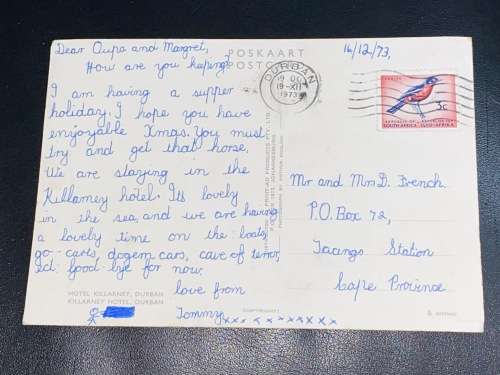 Dear Oupa and Margret,
POSKAART
POSTCARD
How are you keeping?
16/12/73,
I am having a supper
holiday. I hope you have
enjoyable Xmas. You must
try and get that horse.
We are staying in the
Killarney hotel. Its lovely
in the sea, and we are having
a lovely time on the boats,
go-carts, dogem cars, cave of terror,
ect: good bye for now.
love from
Tommy xxxxxxxxxxxx
HOTEL KILLARNEY, DURBAN
KILLARNEY HOTEL, DURBAN
DURBAN
19-XII
1973
3c
REPUBLIC OF SOUTH AFRICA
Mr and Mrs D. French.
P.O. Box 72,
Station
Cape Province
COPYRIGHT